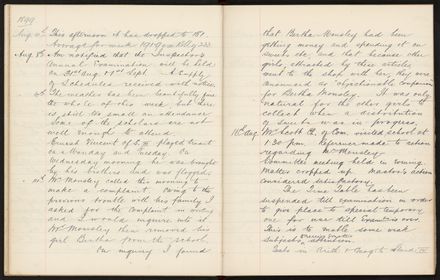 1899
Aug 4th This afternoon it has dropped to 181
Average for week 191.9 on Roll 233
Aug 8th Am notified that the Inspector's
Annual Examination will be held
on 31st Aug. & 1st Sept. A supply
of Schedules received with letter.
The weather has been beautiful for
the whole of this week but there
is still the small an attendance
Some of the scholars are not
well enough to attend.
Ernest Vincent of S. played truant
on Monday and Tuesday. On
Wednesday morning he was brought
by his brother and was flogged.
Mr Monsley called this morning to
make a complaint. Owing to the
previous trouble with his family I
asked for the complaint in writing
and I would inquire into it
Mr Monsley then removed his
girl Bertha from the school.
On inquiry I found
that Bertha Monsley had been
getting money and spending it on
sweets etc and that because other
girls, attracted by these articles
went to the shop with her, they were
announced as objectionable companions
for Bertha Monsley. It was only
natural for the other girls to
collect when a distribution
of sweets etc was in progress.
16th Aug. Mr Scott Ch. of Com. visited school at
1.30 p.m. Reference made to action
regarding Mr Monsley.
Committee meeting held in evening.
Matter cropped up. Master's action
considered satisfactory.
The Time Table has been
suspended till examination in order
to give place to special temporary
one for use till Exam: is over.
This is to enable some weak
subjects receiving greater attention.